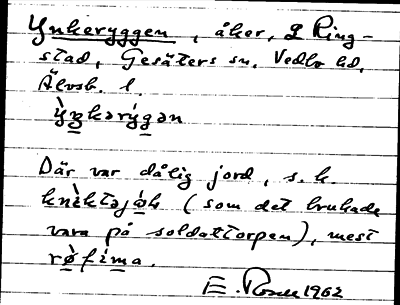 Ynkeryggen, åker, g Ring-
stad, Gesäters sn, Vedbo hd,
Älvsb. l.
ỳŋkərýgən
Där var dålig jord, s. k.
knèktəjóḷ (som det brukade
vara på soldattorpen), mest
røfima.
E. 1962